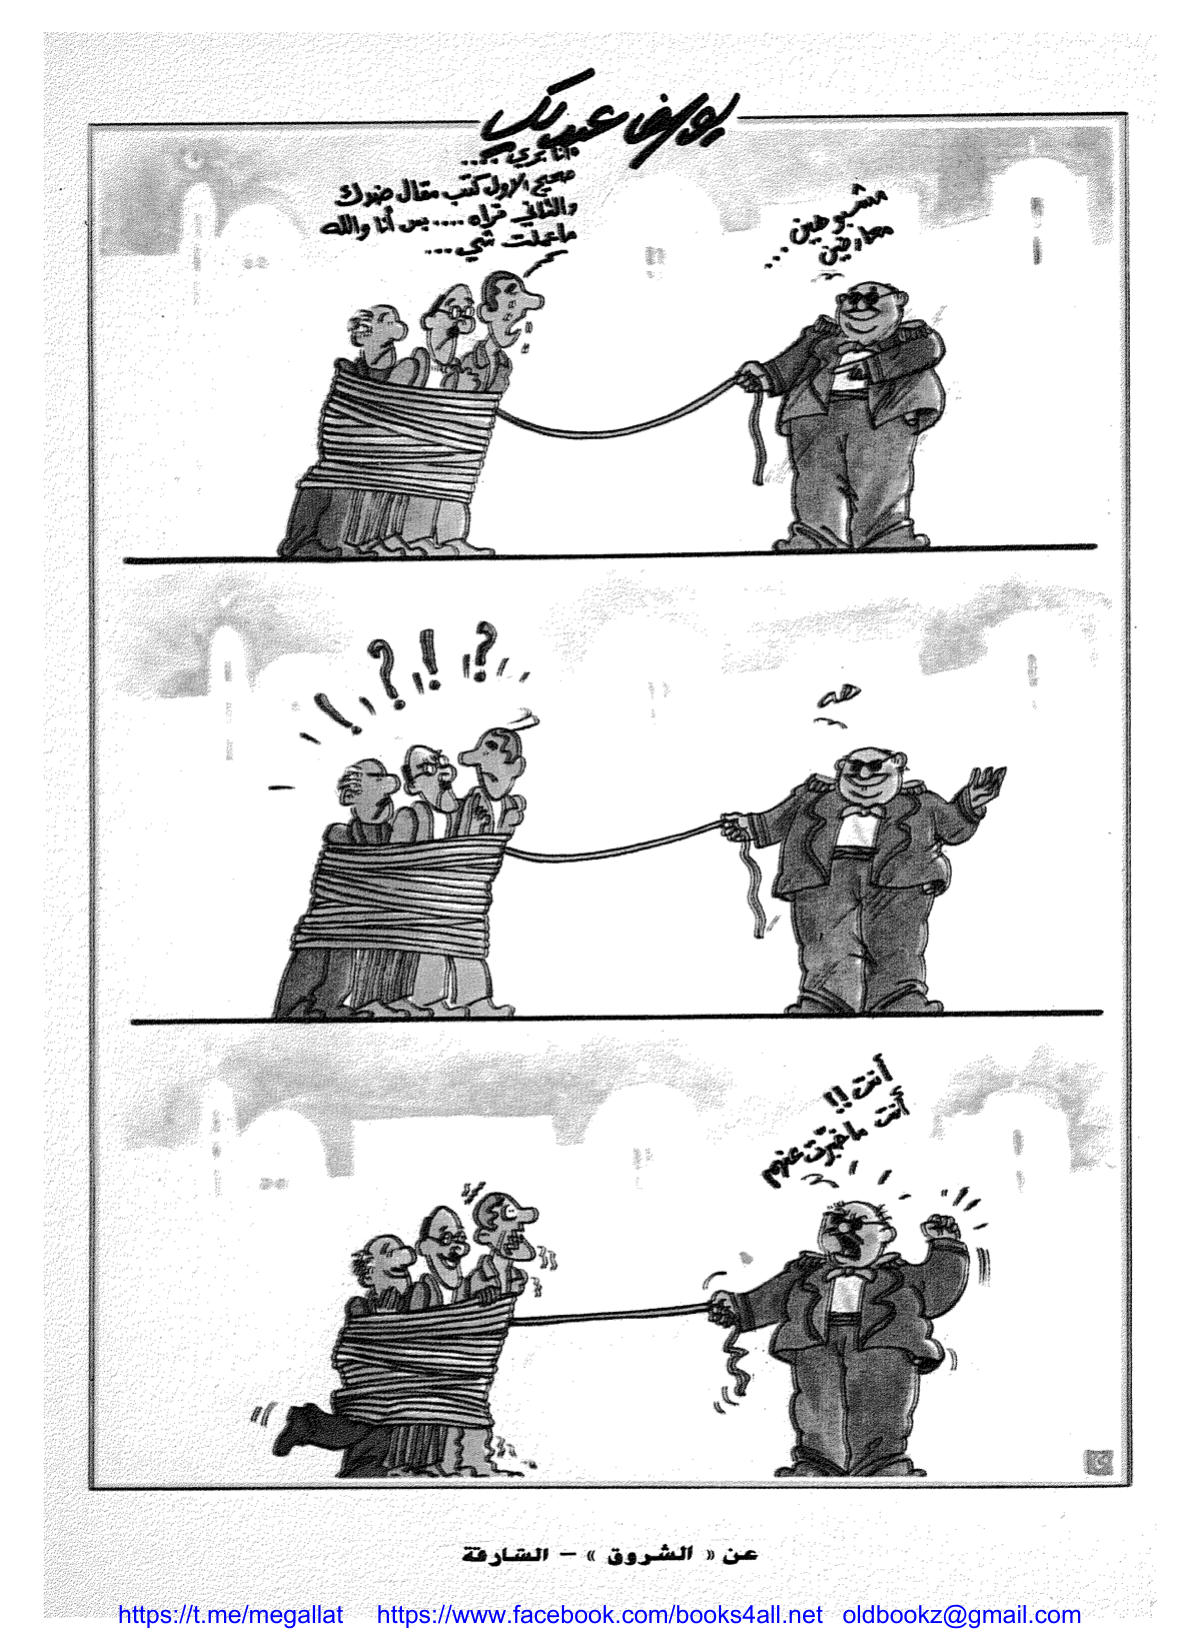 يوسف عبدلكي
مشبوهين
معارضين ...
أنا بريء ....
صحيح الاول كتب مقال ضدك
والثاني قراه .... بس أنا والله
ماعملت شي ...
! ? ! ?
هه
أنت !!
أنت ماخبّرت عنهم
عن « الشروق » – الشارقة
https://t.me/megallat https://www.facebook.com/books4all.net oldbookz@gmail.com